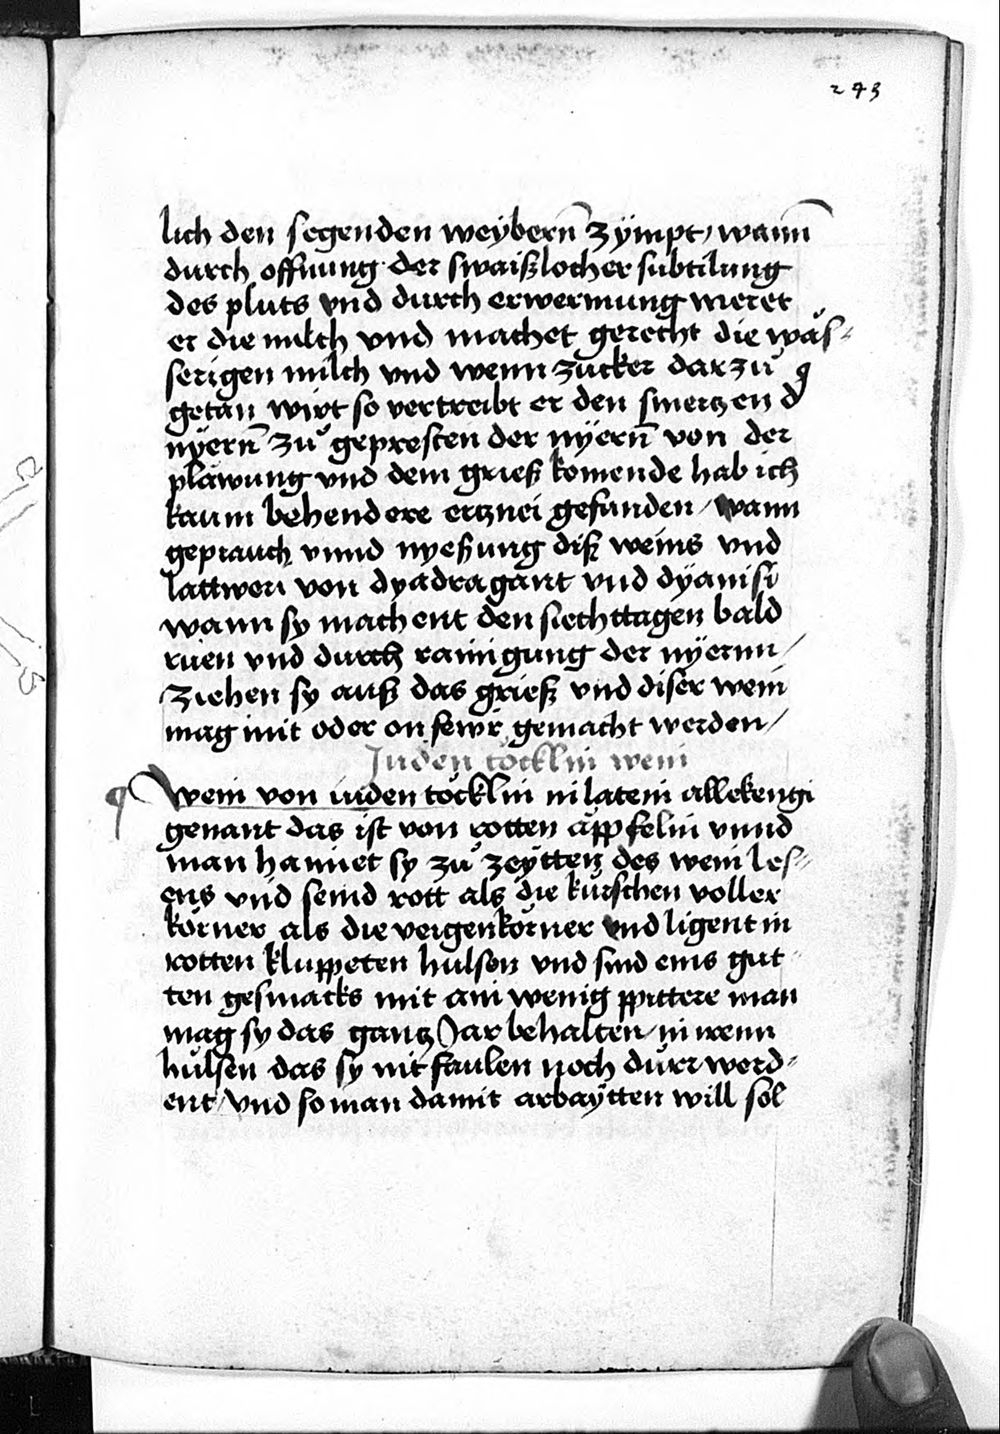 243
lich den segenden weybern̄ zÿmpt / wann̄
durch offnung der swaißlocher subtilung
des pluts vnd durch erwermung meret
er die milch vnd machet gerecht die wäs-
serigen milch vnd wenn zucker dar zů g
getan wirt so vertreibt er den smertzen d
nÿern̄ zů gepresten der nÿern̄ von der
pläwung vnd dem grieß komende hab ich
kaum behendere ertznei gefunden / wann
geprauch vnnd nyeßung diß weins vnd
lattweri von dyadragant vnd dÿanisi
wann sy machent den siechttagen bald
rüen vnd durch rainigung der nÿernn /
ziehen sy auß das grieß vnd diser wein
mag mit oder on fewr gemacht werden /
Juden töcklin wein
¶ Wein von iuden töcklin in latein allekengi
genant das ist von rotten äppfelin vnnd
man hainiet sy zů zeÿtten des wein les-
ens vnd seind rott als die kürschen voller
körner als die veigenkörner vnd ligent in
rotten kluppeten hulsen vnd sind eins gut
ten gesmacks mit ain wenig ppittere man
mag sy das gantz Jar behalten / in irenn
hülsen das sy nit faulen noch dürr werd-
ent / vnd so man damit arbaÿtten will sol